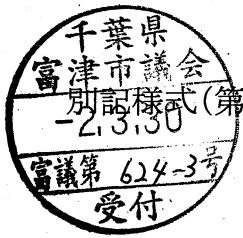 千葉県
富津市議会
別記様式(第
-2.3.30
富議第 624-3号
受付